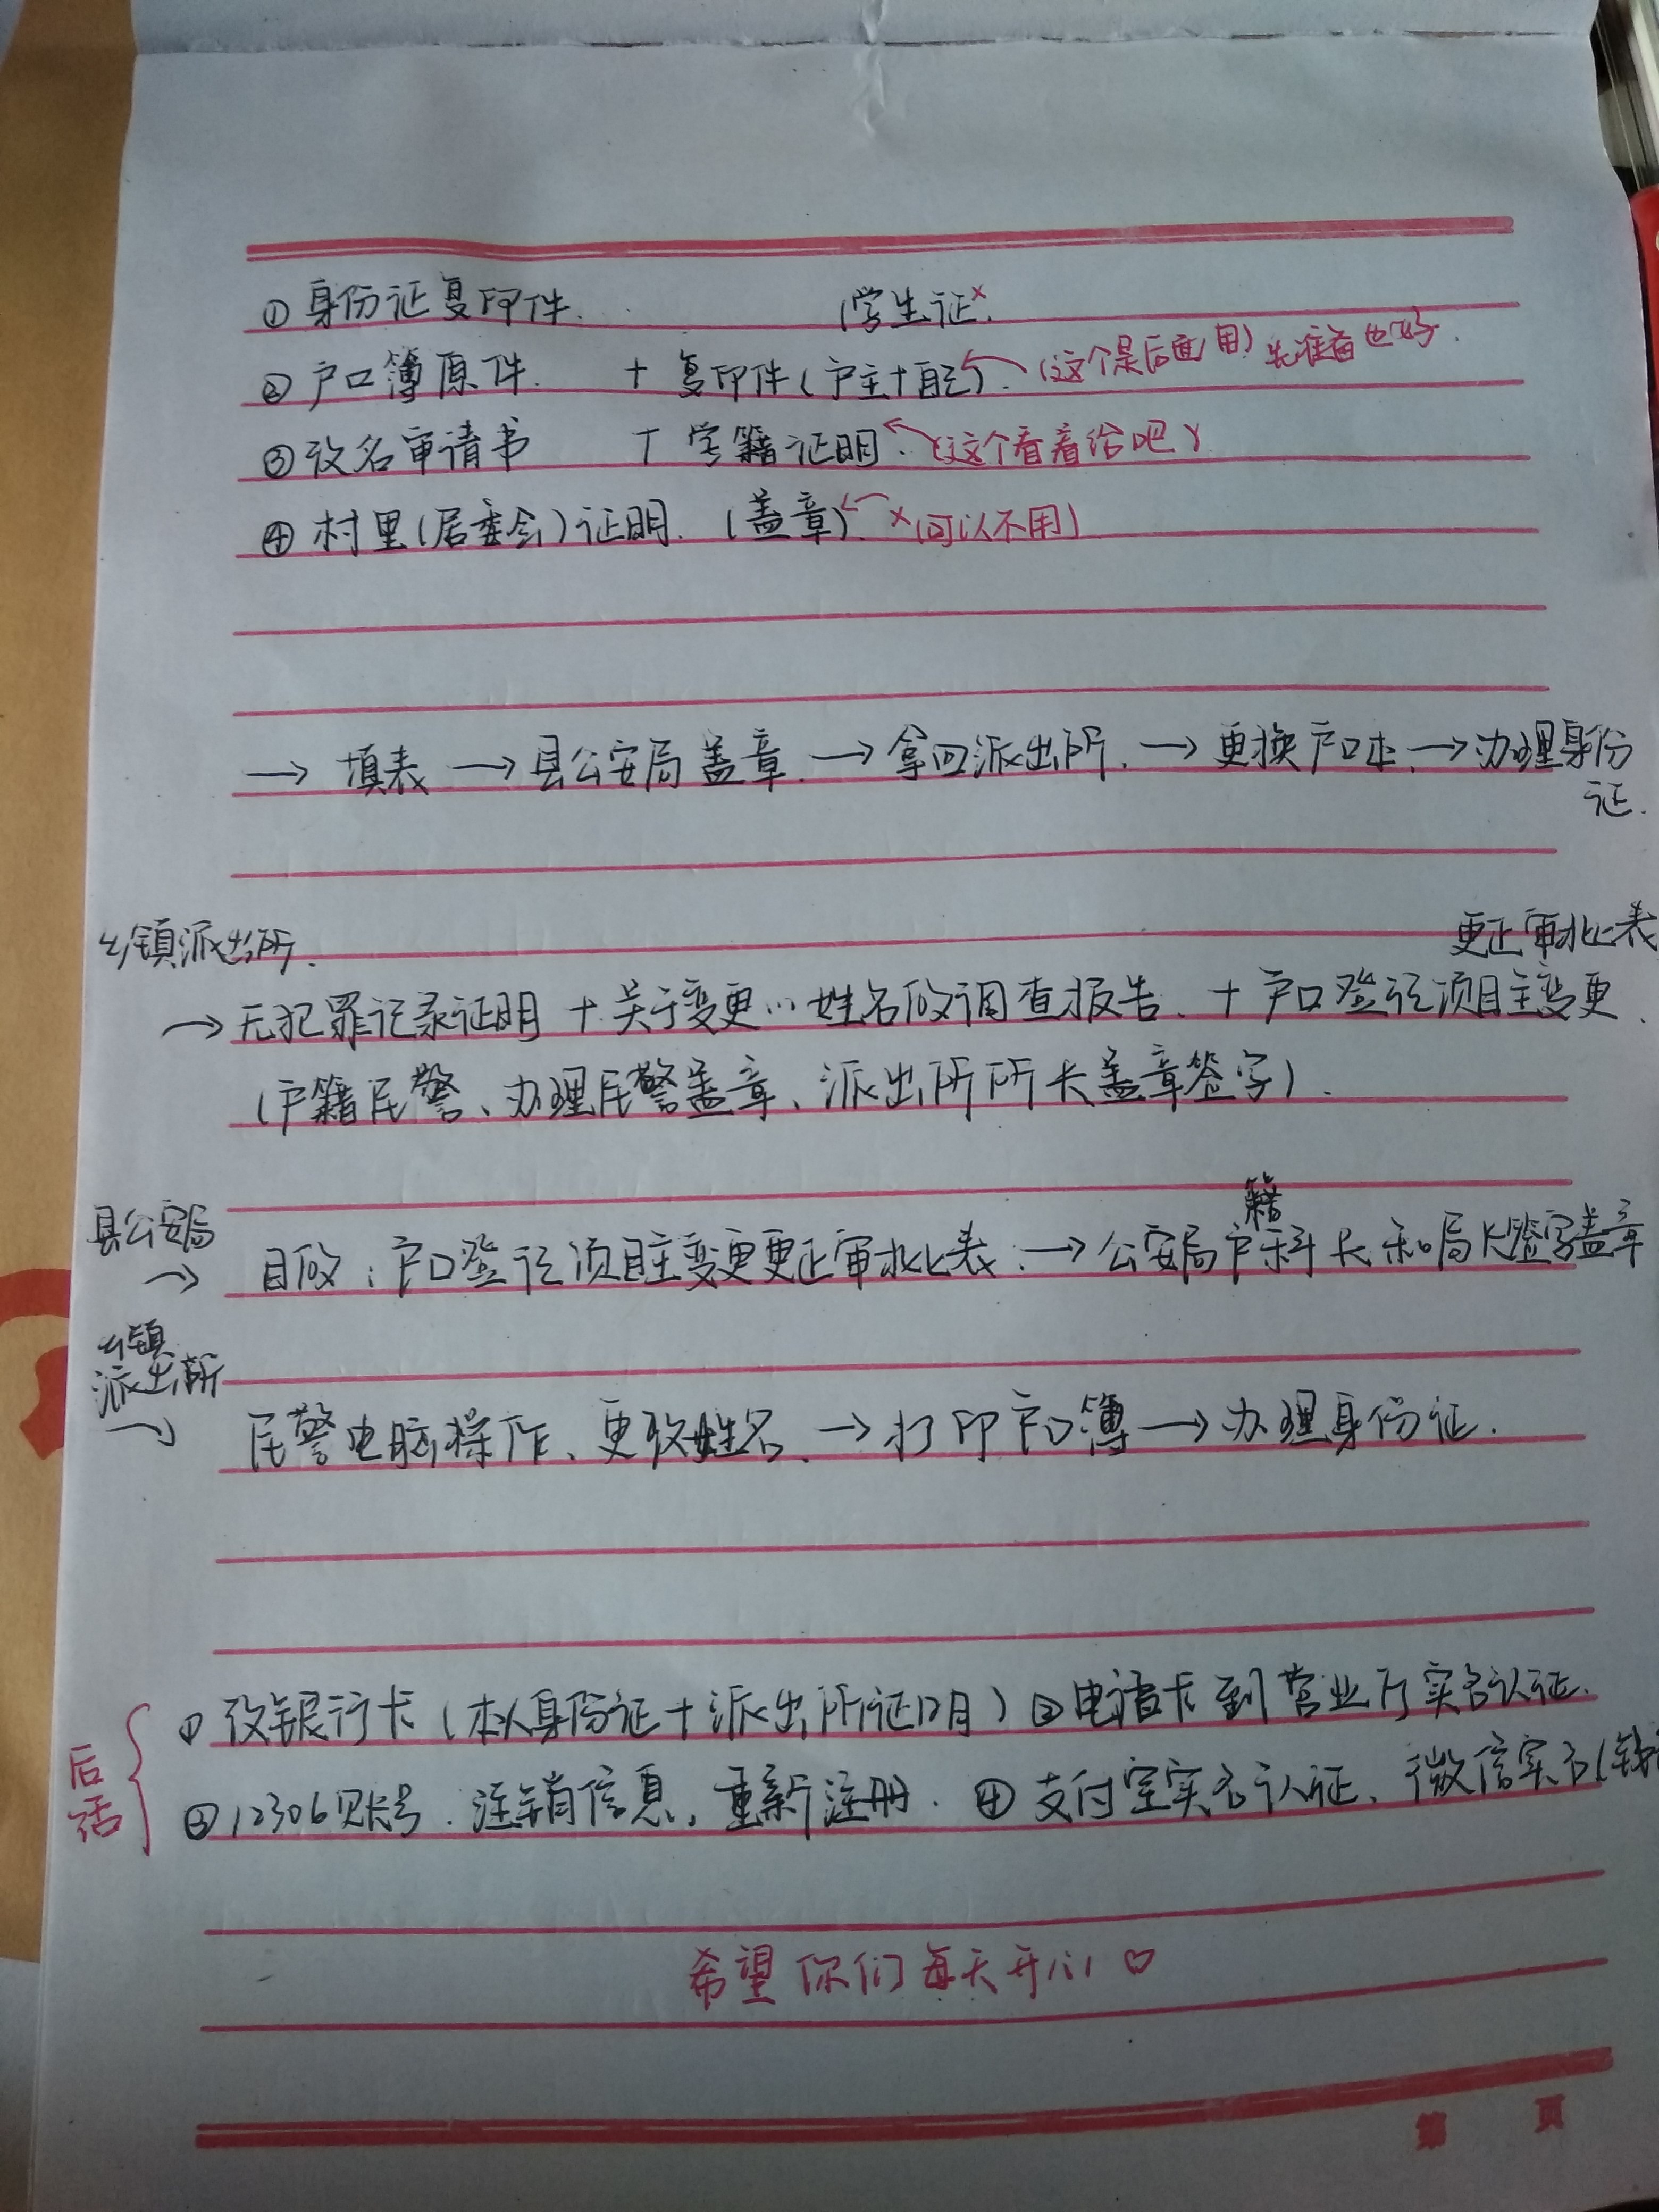 ①身份证复印件. (学生证.×
②户口簿原件. + 复印件(户主+自己). (这个是后面用)先准备也好.
③改名申请书 + 学籍证明. (这个看着给吧)
④村里(居委会)证明. (盖章). ×(可以不用)
→ 填表 → 县公安局盖章. → 拿回派出所. → 更换户口本. → 办理身份
证.
乡镇派出所. 更正审批表
→ 无犯罪记录证明 + 关于变更…姓名的调查报告. + 户口登记项目主变更.
(户籍民警、办理民警盖章、派出所所长盖章签字).
县公安局 籍
→ 目的:户口登记项目主变更更正审批表. → 公安局户科长和局长签字盖章
乡镇
派出所
→ 民警电脑操作、更改姓名. → 打印户口簿 → 办理身份证.
后话 ①改银行卡(本人身份证+派出所证明) ②电话卡到营业厅实名认证.
③12306账号.注销信息,重新注册. ④支付宝实名认证、微信实名(钱
希望你们每天开心♡
第 页